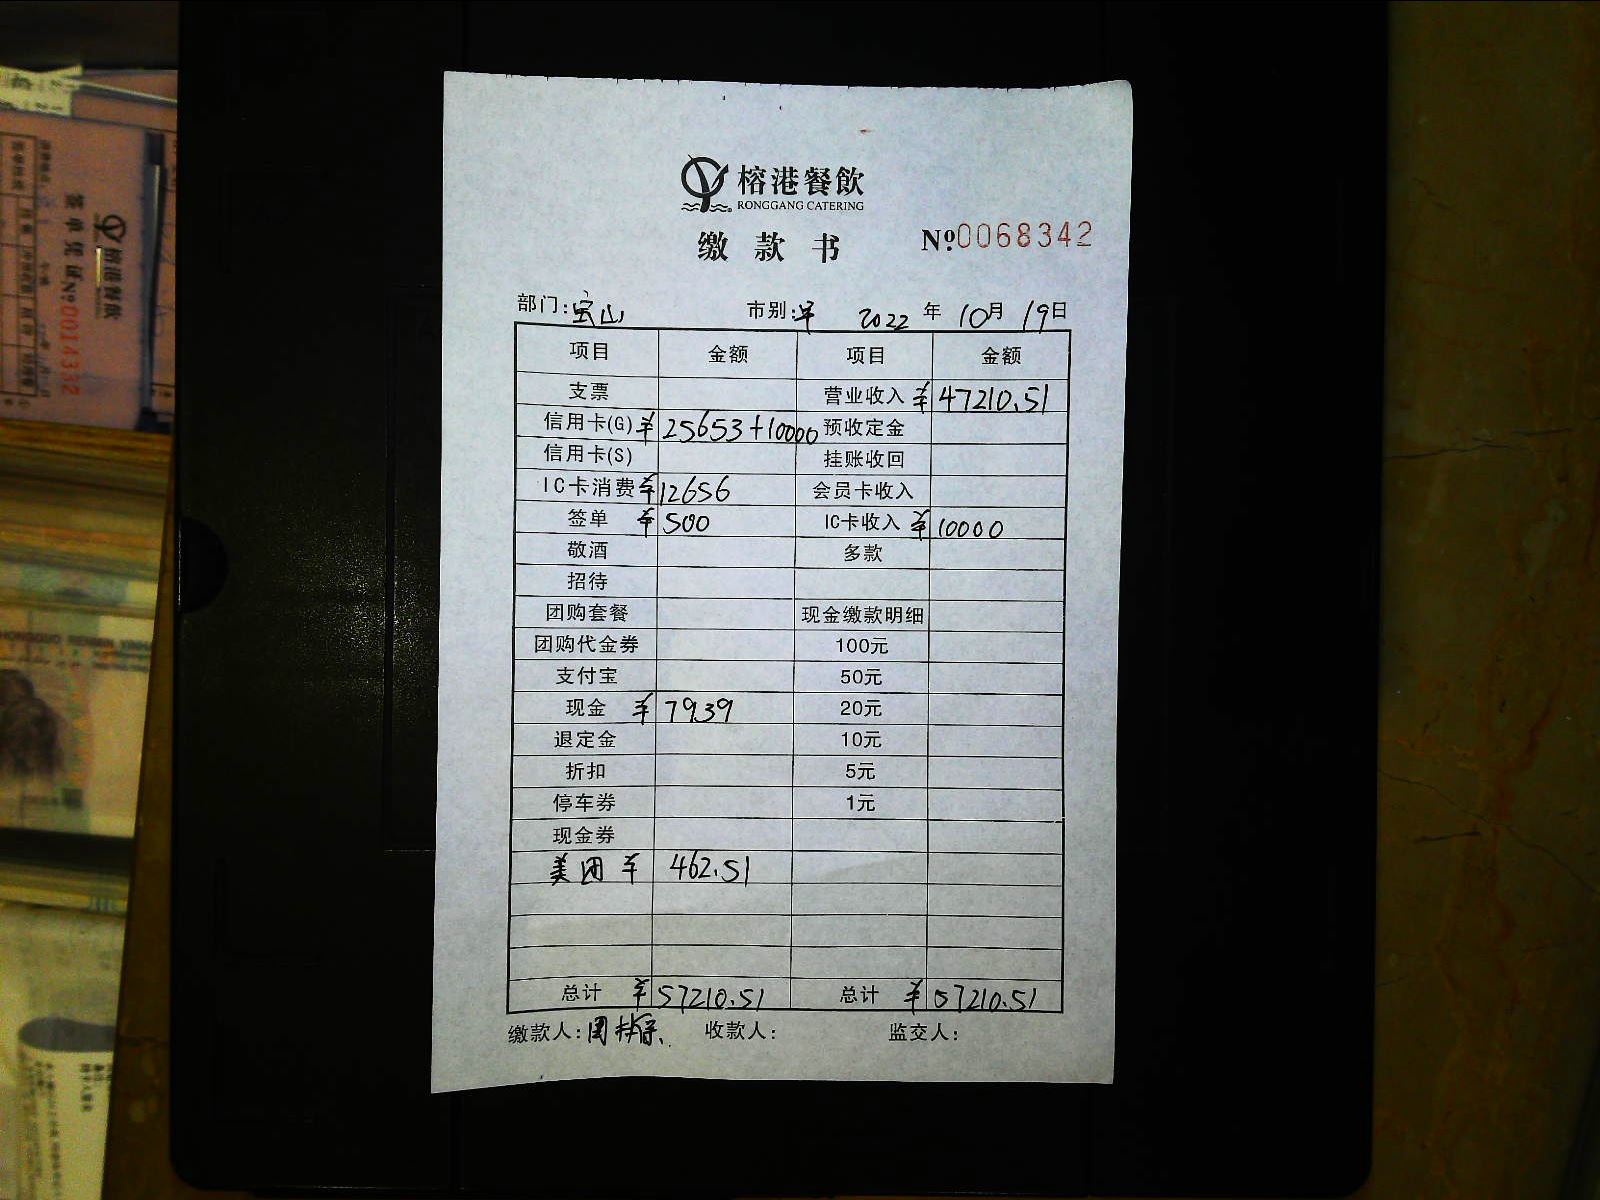 榕港餐飲
RONGGANG CATERING
缴款书 №0068342
部门:宝山 市别:早 2022年10月19日
项目 金额 项目 金额
支票 营业收入 ¥47210.51
信用卡(G) ¥25653+10000 预收定金
信用卡(S) 挂账收回
IC卡消费 ¥12656 会员卡收入
签单 ¥500 IC卡收入 ¥10000
敬酒 多款
招待
团购套餐 现金缴款明细
团购代金券 100元
支付宝 50元
现金 ¥7939 20元
退定金 10元
折扣 5元
停车券 1元
现金券
美团 ¥462.51
总计 ¥57210.51 总计 ¥57210.51
缴款人: 收款人: 监交人:
榕港餐飲
签单凭证
№0014332